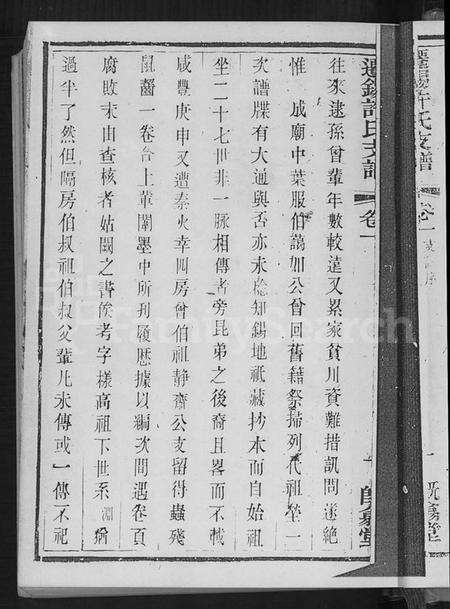 遷錫許氏支譜
卷一
往來逮孫曾輩年數較遠又累家貧川資難措訊問遂絕
惟 成廟中葉服伯謁如公曾回舊籍祭掃列代祖塋一
次譜牒有大通與否亦未悉知錫地祇藏抄本而自始祖
坐二十七世非一脈相傳者旁昆弟之後裔且畧而不載
咸豐庚申又遭秦火幸四房曾伯祖静齋公支留得蟲殘
鼠齧一卷合上輩闈墨中所刊履歷據以編次間遇卷頁
腐敗末由查核者姑闕之書俟考字樣高祖下世系淵猶
過半了然但隔房伯叔祖伯叔父輩凡未傳或一傳不祀
遷錫許氏支譜
卷一